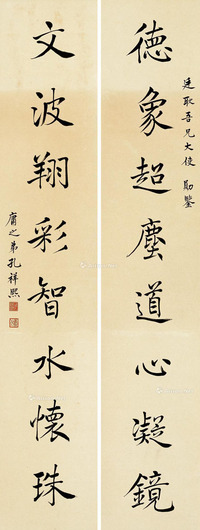 廷耿吾兄大使勛鑒
德象超塵道心凝鏡
文波翔彩智水懷珠
庸之弟孔祥熙